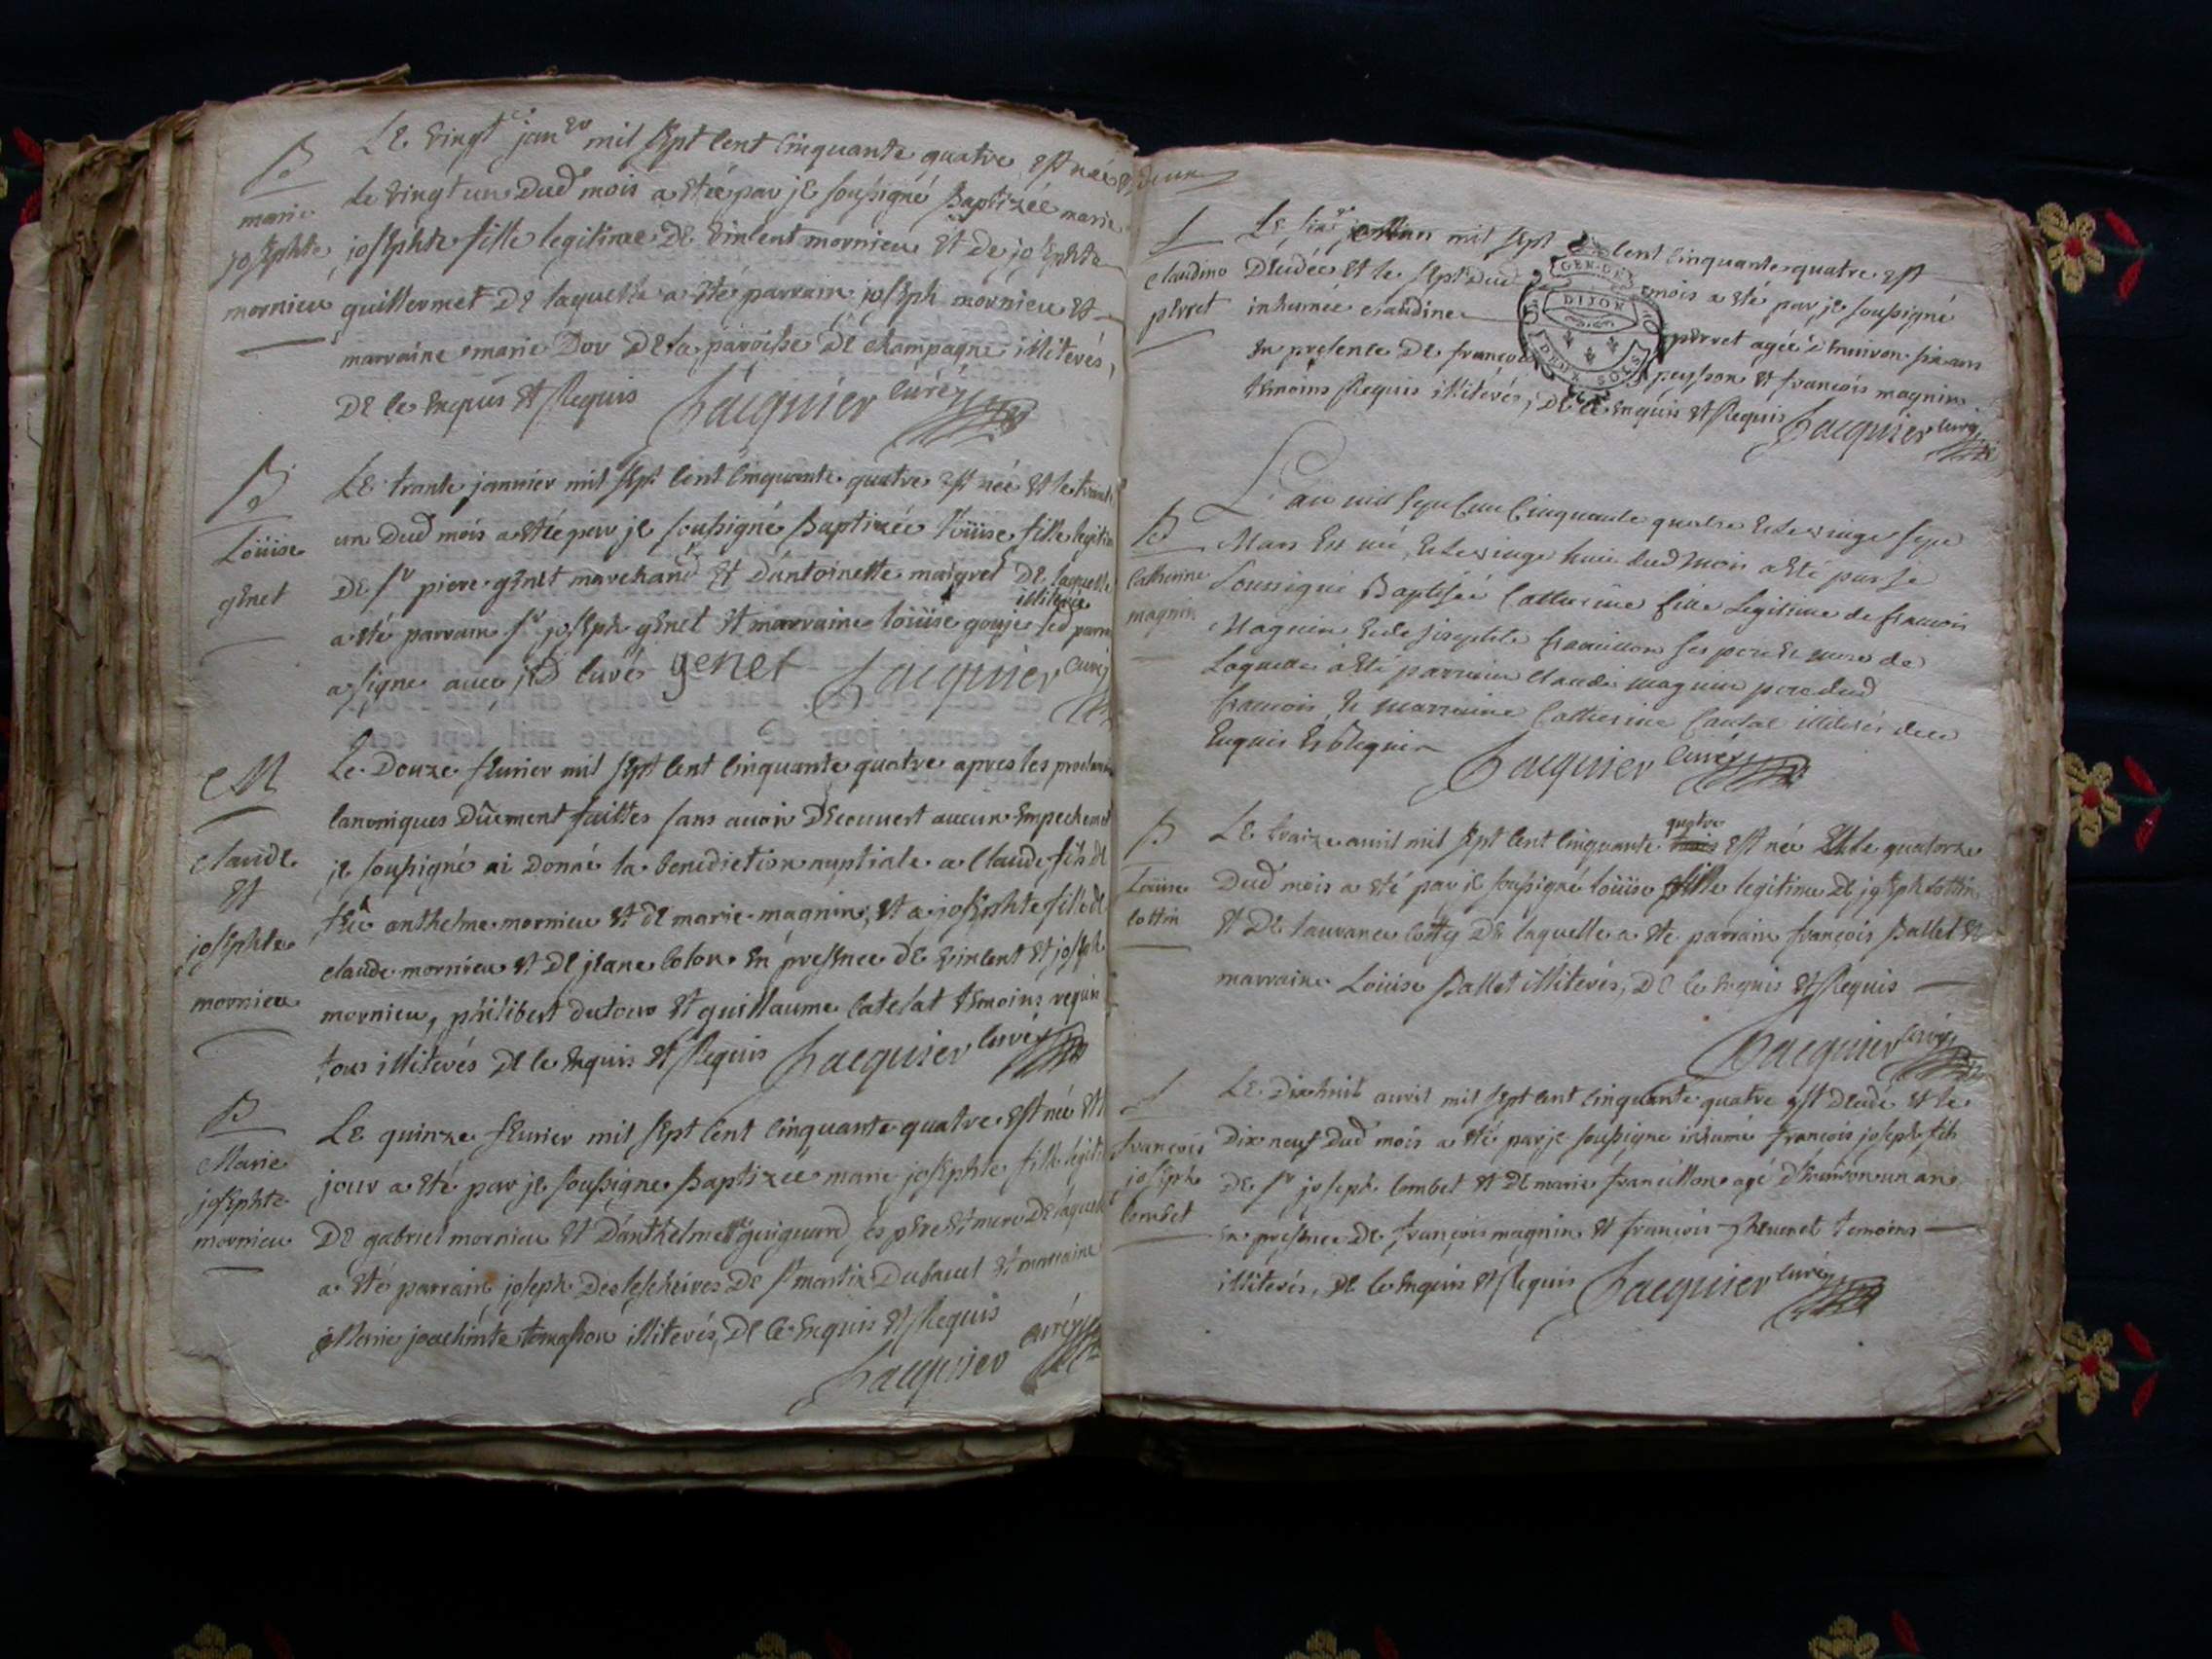 B
marie
josephte
mornieu
Le vingt janer mil sept cent cinquante quatre est née et
le vingt un dud mois a etée par je soussigné Baptizée marie
josephte fille legitime de vincent mornieu et de josephte
guillermet de laquelle a été parrain joseph mornieu et
marraine marie Dor de la paroisse de champagne illiterés,
de ce enquis et Requis Jacquier curé
B
Loüise
genet
Le trante janvier mil sept cent cinquante quatre est née et le trante
un dud mois a etée par je soussigné Baptizée Loüise fille legitim
de sr piere genet marchand et d'antoinette maigret de laquelle
a été parrain sr joseph genet et marraine loüise gouje illiterée led parn
a signé avec jed curé genet Jacquier curé
M
claude
et
josephte
mornieu
Le Douze fevrier mil sept cent cinquante quatre apres les proclam
canoniques dûement faittes sans avoir decouvert aucun empechement
je soussigné ai donné la benediction nuptiale a claude fils de
feu anthelme mornieu et de marie magnin, et a josephte fille de
claude mornieu et de jeane coton en presence de vincent et joseph
mornieu, philibert dutour et guillaume catelat temoins requis
tous illiterés de ce enquis et Requis Jacquier curé
B
Marie
josephte
mornieu
Le quinze fevrier mil sept cent cinquante quatre est née et
jour a été par je soussigné Baptizée marie josephte fille legiti
de gabriel mornieu et d'anthelmette guiguard ses pere et mere de laquelle
a été parrain joseph de st martin du bavel et marraine
Marie joachinte illiterés, de ce enquis et Requis
Jacquier curé
S
claudine
perret
Le six mil sept cent cinquante quatre est
decedée et le sept dud mois a été par je soussigné
inhumée claudine perret agée d'environ six ans
en presence de françois peysson et françois magnin
temoins Requis illiterés, de ce enquis et Requis Jacquier curé
GEN. DE
DIJON
DEUX SOLS
B
Catherine
magnin
L'an mil sept cent cinquante quatre et le vingt sept
Mars est née, et le vingt huit dud mois a été par je
soussigné Baptisée Catherine fille Legitime de francois
Magnin et de josephte francillon ses pere et mere de
Laquelle a été parrain claude magnin pere dud
francois et marraine Catherine illiterés de ce
Enquis et Requis Jacquier curé
B
Loüise
cottin
Le traize avril mil sept cent cinquante quatre est née et le quatorze
dud mois a été par je soussigné loüise fille legitime de joseph cottin
et de laurance de laquelle a été parrain françois Ballet et
marraine Loüise Ballet illiterés, de ce enquis et Requis
Jacquier curé
S
françois
joseph
combet
Le dixhuit avril mil sept cent cinquante quatre est decedé et le
dix neuf dud mois a été par je soussigné inhumé françois joseph fils
de sr joseph combet et de marie francillon agé d'environ un an
en presence de françois magnin et françois temoins
illiterés, de ce enquis et Requis Jacquier curé